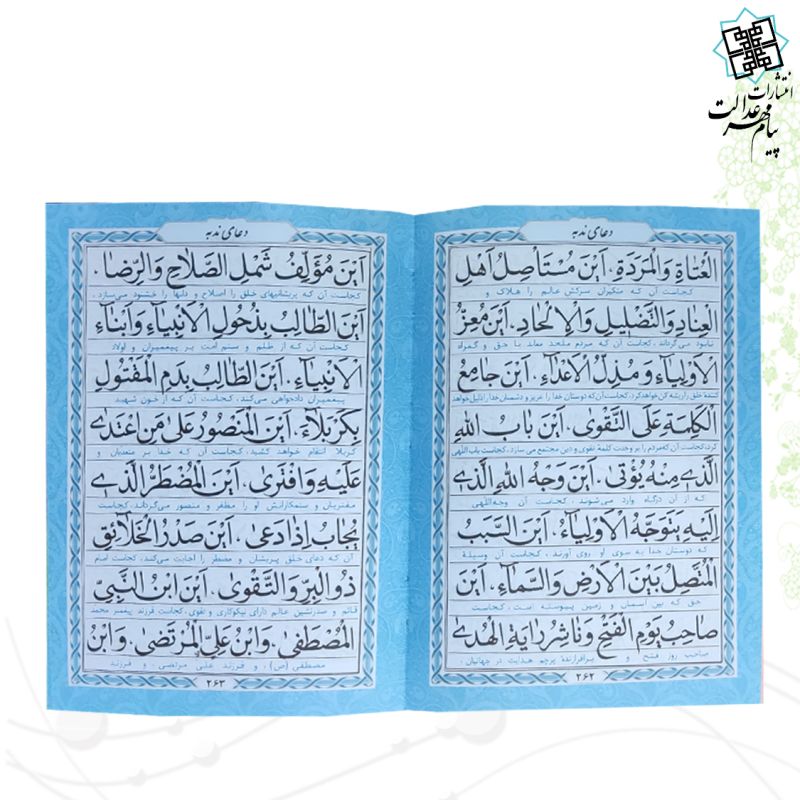 انتشارات
پیام مهر عدالت
دعای ندبه
الْعُتاةِ وَالْمَرَدَةِ، اَیْنَ مُسْتَاْصِلُ اَهْلِ
کجاست آن که متکبران سرکش عالم را هلاک و
الْعِنادِ وَالتَّضْلیلِ وَالْاِلْحادِ، اَیْنَ مُعِزُّ
نابود می‌گرداند، کجاست آن که مردم ملحد معاند با حق و گمراه
الْاَوْلِیاَّءِ وَ مُذِلُّ الْاَعْداَّءِ، اَیْنَ جامِعُ
کننده خلق را ریشه کن خواهد کرد، کجاست آن که دوستان خدا را عزیز و دشمنان خدا را ذلیل خواهد
الْکَلِمَةِ عَلَی التَّقْوی، اَیْنَ بابُ اللهِ
کرد، کجاست آن که مردم را بر وحدت کلمهٔ تقوی و دین مجتمع می سازد، کجاست باب اللهی
الَّذی مِنْهُ یُؤْتی، اَیْنَ وَجْهُ اللهِ الَّذی
که از آن درگاه وارد می‌شوند، کجاست آن وجه‌اللهی
اِلَیْهِ یَتَوَجَّهُ الْاَوْلِیاَّءُ، اَیْنَ السَّبَبُ
که دوستان خدا به سوی او روی آورند، کجاست آن وسیلهٔ
الْمُتَّصِلُ بَیْنَ الْاَرْضِ وَالسَّماَّءِ، اَیْنَ
حق که بین آسمان و زمین پیوسته است، کجاست
صاحِبُ یَوْمِ الْفَتْحِ وَ ناشِرُ رایَةِ الْهُدی
صاحب روز فتح و برافرازندهٔ پرچم هدایت در جهانیان،
۲۶۲
دعای ندبه
اَیْنَ مُؤَلِّفُ شَمْلِ الصَّلاحِ وَالرِّضا،
کجاست آن که پریشانیهای خلق را اصلاح و دلها را خشنود می‌سازد،
اَیْنَ الطّالِبُ بِذُحُولِ الْاَنْبِیاَّءِ وَ اَبْناَّءِ
کجاست آن که از ظلم و ستم امت بر پیغمبران و اولاد
الْاَنْبِیاَّءِ، اَیْنَ الطّالِبُ بِدَمِ الْمَقْتُولِ
پیغمبران دادخواهی می‌کند، کجاست آن که از خون شهید
بِکَرْبَلاَّءَ، اَیْنَ الْمَنْصُورُ عَلی مَنِ اعْتَدی
کربلا انتقام خواهد کشید، کجاست آن که خدا بر متعدیان و
عَلَیْهِ وَافْتَری، اَیْنَ الْمُضْطَرُّ الَّذی
مفتریان و ستمکارانش او را مظفر و منصور می‌گرداند، کجاست
یُجابُ اِذا دَعی، اَیْنَ صَدْرُ الْخَلاَّئِقِ
آن که دعای خلق پریشان و مضطر را اجابت می‌کند، کجاست امام
ذُو الْبِرِّ وَالتَّقْوی، اَیْنَ ابْنُ النَّبِیِّ
قائم و صدرنشین عالم دارای نیکوکاری و تقوی، کجاست فرزند پیغمبر محمد
الْمُصْطَفی، وَابْنُ عَلِیٍّ الْمُرْتَضی، وَابْنُ
مصطفی (ص)، و فرزند علی مرتضی، و فرزند
۲۶۳